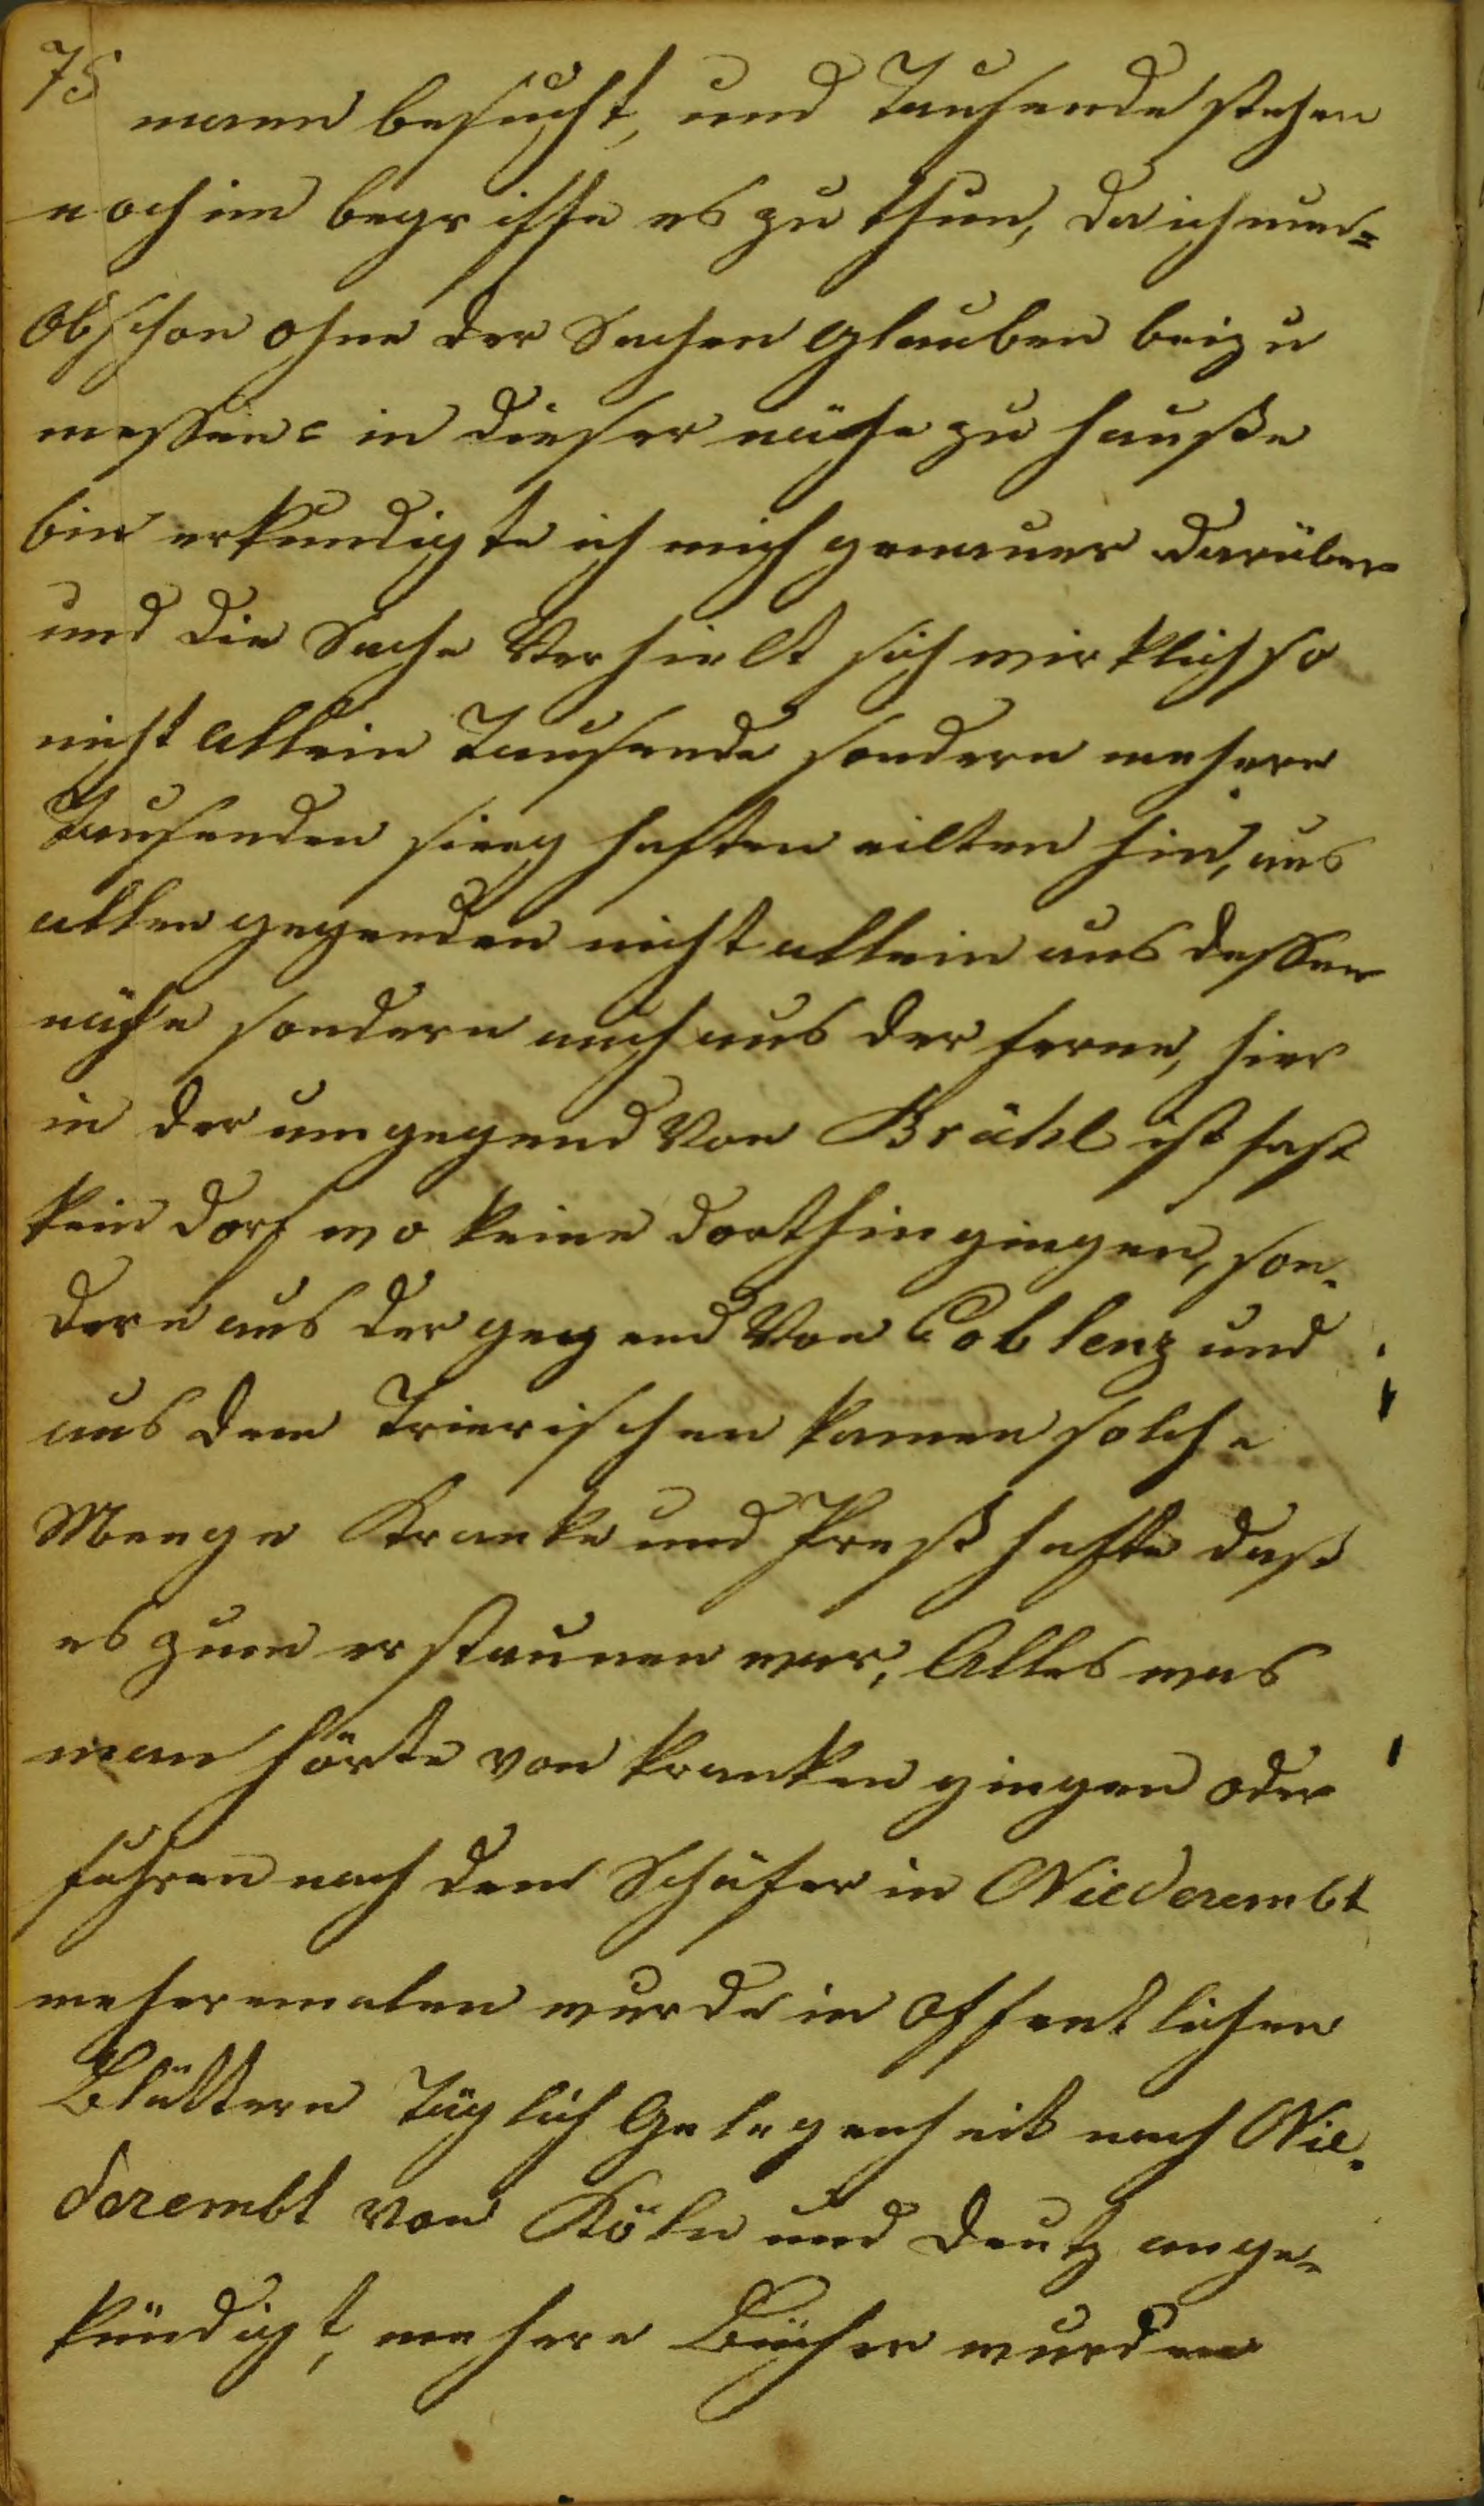 75
mann besucht, und Tausende stehen
noch im begriffe es zu thun, da ich nun=
Obschon ohne der Sachen glauben beizu
messen= in dieser nähe zu hauße
bin erkundigte ich mich genauer darüber
und die Sache Verhielt sich wirklich so
nicht allein Tausende sondern mehere
Tausenden sieghaften eilten hin, aus
allen gegenden nicht allein aus dessen
nähe sondern auch aus der ferne, hier
in der umgegend Von Brühl ist fast
kein dorf wo keine dorthin gingen, son-
dern aus der gegend Von Coblenz und
aus dem Trierischen kamen solche
Menge Kranke und Preßhafte daß
es zum erstaunen war, Alles was
man hörte von kranken gingen oder
fuhren nach dem Schäfer in Niederembt
meheremalen wurde in offentlichen
Blättern Täglich Gelegenheit nach Nie-
derembt von Köln und Deutz ange-
kündigt, mehere Bücher wurden